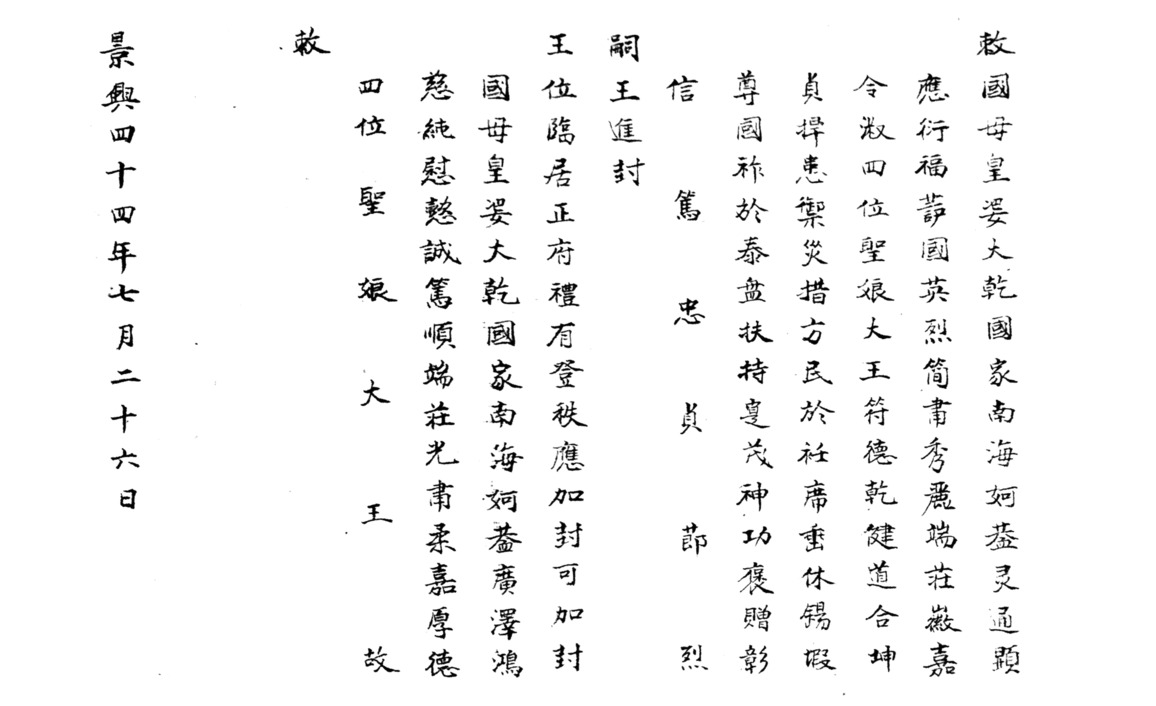 敕國母皇婆大乾國家南海妸葢灵通顕
應衍福莭國英烈简肅秀麗端莊嶶嘉
令淑四位聖娘大王符德乾健道合坤
貞捍患禦災措方民於衽席垂休锡嘏
尊國祚於泰盘扶持寔茂神功褒贈彰
信篤忠貞莭烈
嗣王進封
王位臨居正府禮有登秩應加封可加封
國母皇婆大乾國家南海妸葢廣澤鴻
慈純慰懿誠篤順端莊光肅柔嘉厚德
四位聖娘大王故
敕
景興四十四年七月二十六日